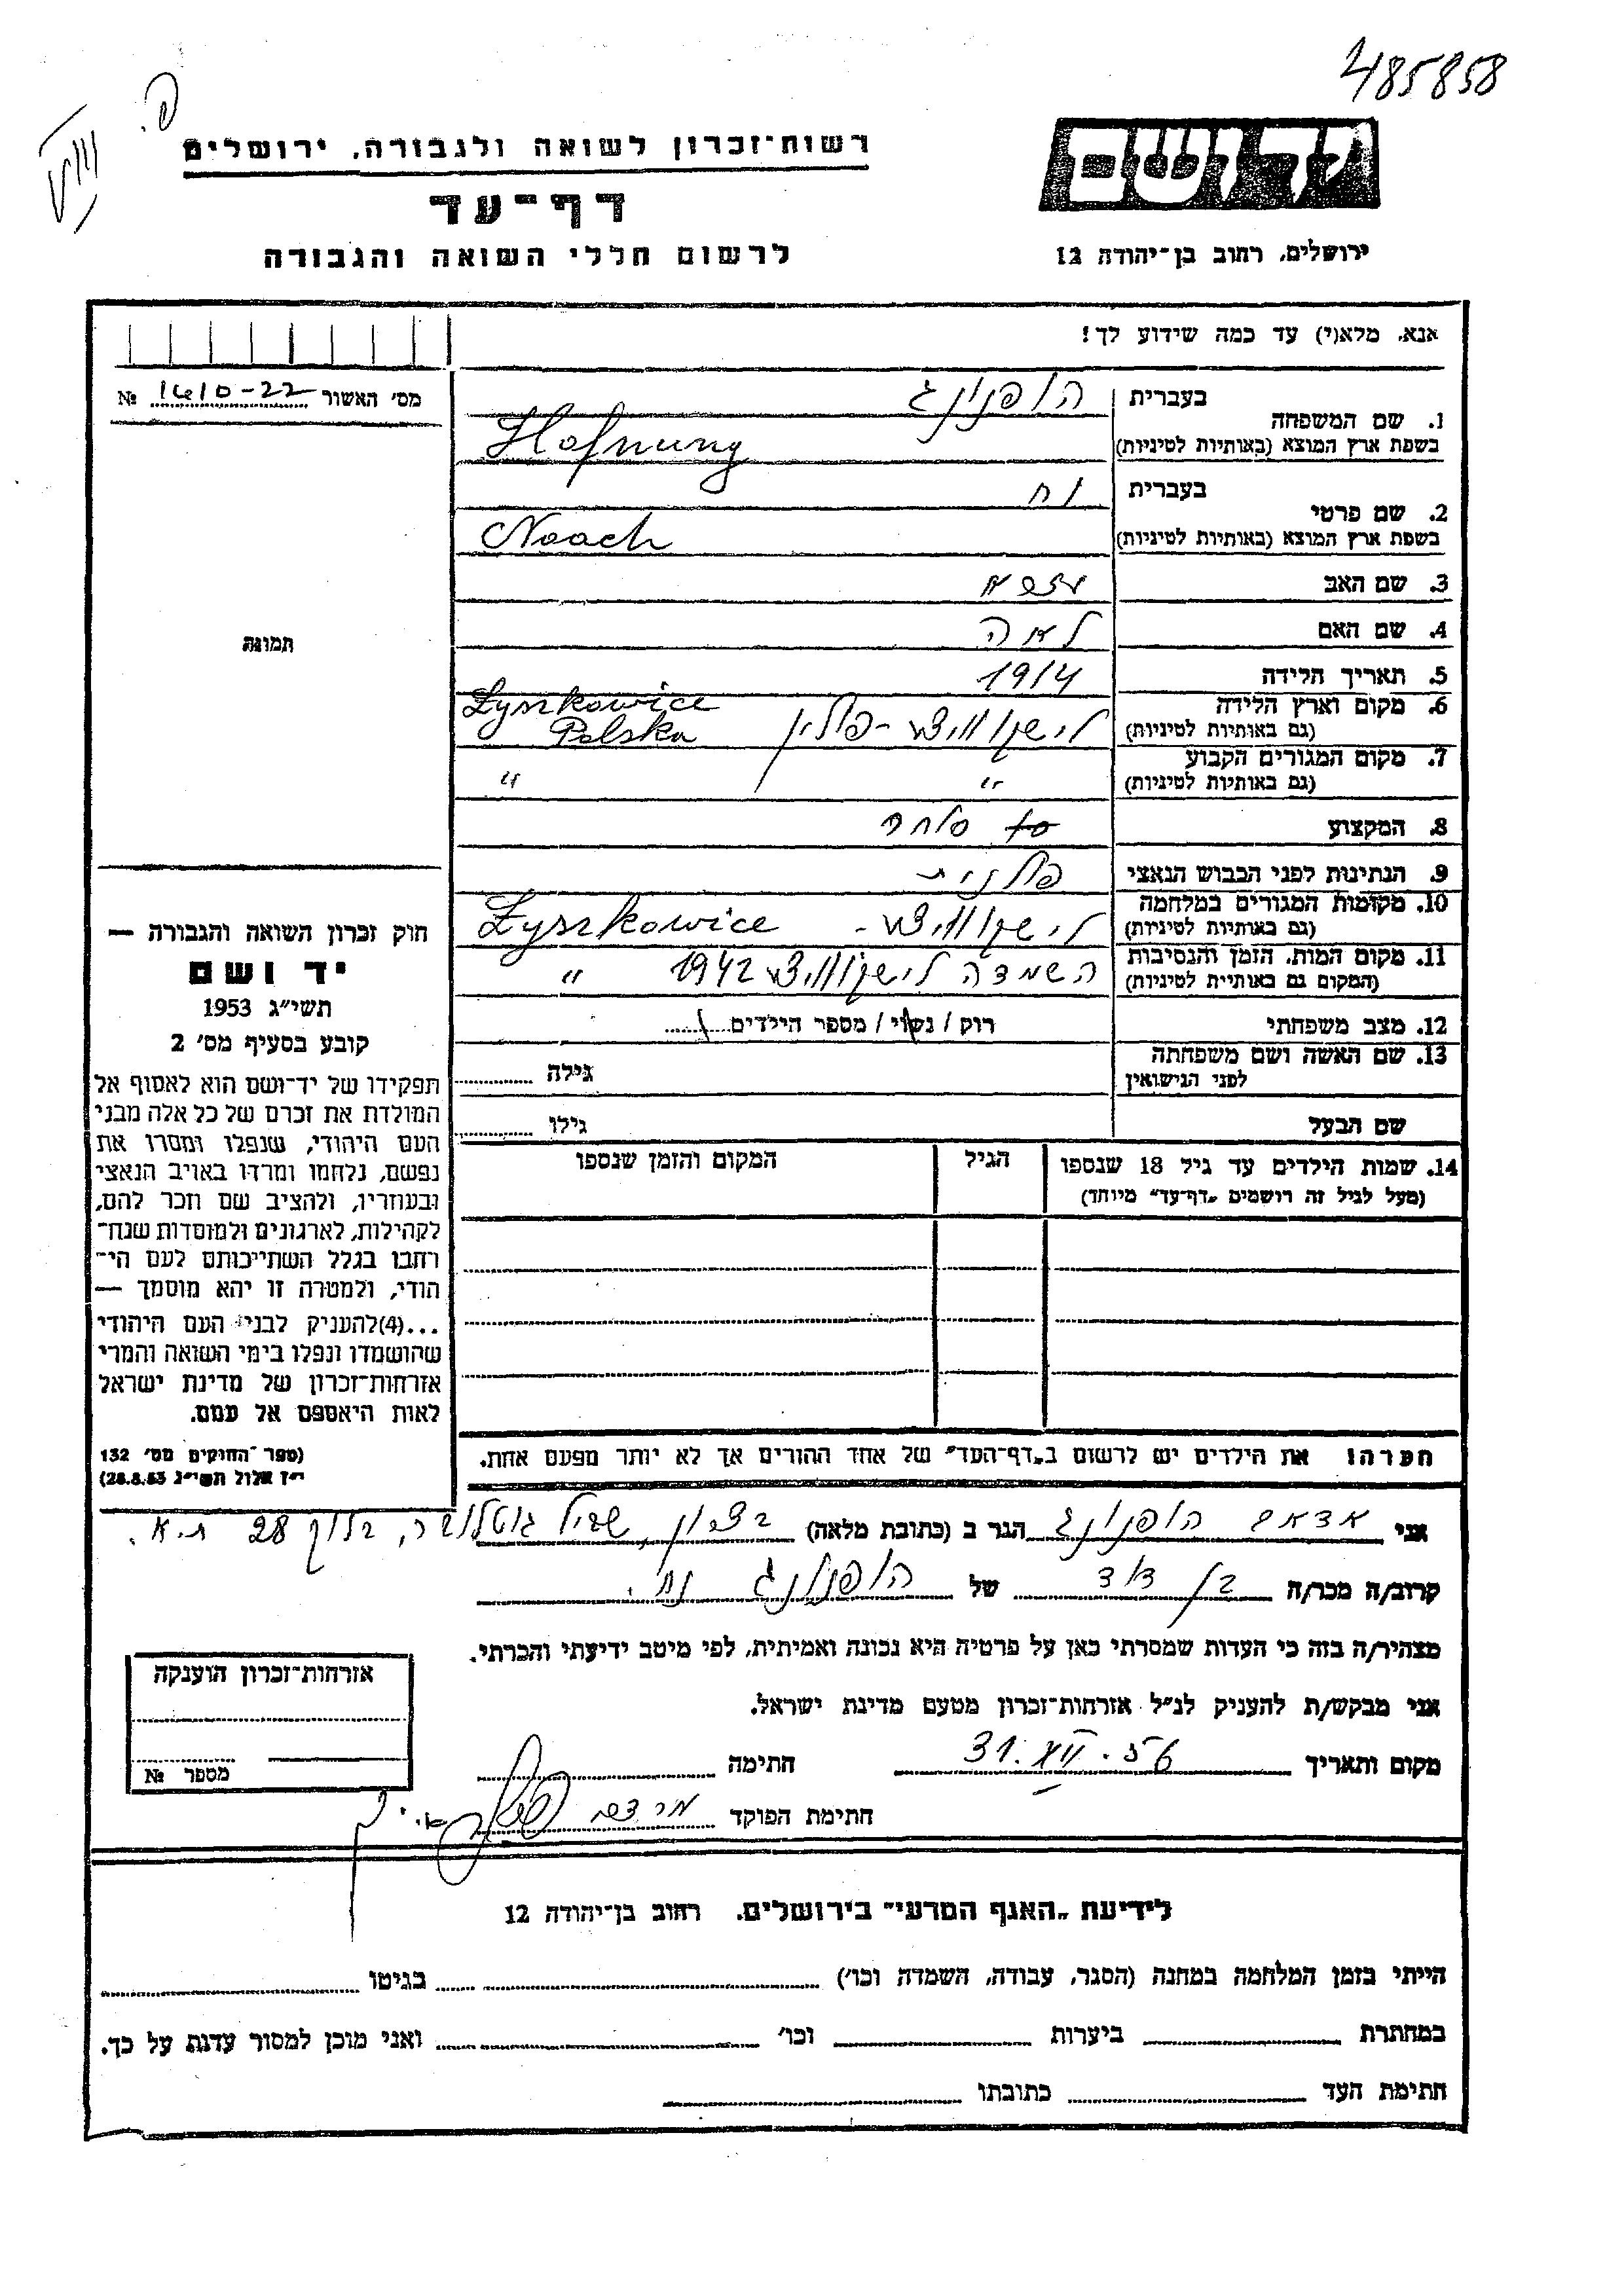 485858
רשות־זכרון לשואה ולגבורה, ירושלים
דף־עד
לרשום חללי השואה והגבורה
יד ושם
ירושלים, רחוב בן־יהודה 12
אנא, מלא(י) עד כמה שידוע לך!
מס׳ האשור 1610-22 №
1. שם המשפחה בעברית הופנונג
בשפת ארץ המוצא (באותיות לטיניות) Hofnung
2. שם פרטי בעברית נח
בשפת ארץ המוצא (באותיות לטיניות) Noach
3. שם האב
4. שם האם לאה
5. תאריך הלידה 1914
6. מקום וארץ הלידה לישקוביצה - פולין Łyszkowice
(גם באותיות לטיניות) Polska
7. מקום המגורים הקבוע
(גם באותיות לטיניות) " "
8. המקצוע סוחר
9. הנתינות לפני הכבוש הנאצי פולנית
10. מקומות המגורים במלחמה
(גם באותיות לטיניות) לישקוביצה - Łyszkowice
11. מקום המות, הזמן והנסיבות
(המקום גם באותיות לטיניות) השמדה לישקוביצה 1942 "
12. מצב משפחתי רוק / נשוי / מספר הילדים
13. שם האשה ושם משפחתה
לפני הנישואין גילה
שם הבעל גילו
14. שמות הילדים עד גיל 18 שנספו הגיל המקום והזמן שנספו
(מעל לגיל זה רושמים „דף־עד" מיוחד)
הערה! את הילדים יש לרשום ב„דף־העד" של אחד ההורים אך לא יותר מפעם אחת.
תמונה
חוק זכרון השואה והגבורה —
יד ושם
תשי״ג 1953
קובע בסעיף מס׳ 2
תפקידו של יד־ושם הוא לאסוף אל
המולדת את זכרם של כל אלה מבני
העם היהודי, שנפלו ומסרו את
נפשם, נלחמו ומרדו באויב הנאצי
ובעוזריו, ולהציב שם וזכר להם,
לקהילות, לארגונים ולמוסדות שנח־
רחבו בגלל השתייכותם לעם הי־
הודי, ולמטרה זו יהא מוסמך —
...(4)להעניק לבני העם היהודי
שהושמדו ונפלו בימי השואה והמרי
אזרחות־זכרון של מדינת ישראל
לאות היאספם אל עמם.
(ספר החוקים מס׳ 132
י״ז אלול תשי״ג 28.8.53)
אני הופנונג הגר ב (כתובת מלאה) בצרון, שביל גוטלובר, בלוק 28 ת.א.
קרוב/ה מכר/ה בן דוד של הופנונג נח.
מצהיר/ה בזה כי העדות שמסרתי כאן על פרטיה היא נכונה ואמיתית, לפי מיטב ידיעתי והכרתי.
אני מבקש/ת להעניק לנ״ל אזרחות־זכרון מטעם מדינת ישראל.
מקום ותאריך חתימה
חתימת הפוקד
אזרחות־זכרון הוענקה
מספר №
לידיעת „האגף המדעי" בירושלים, רחוב בן־יהודה 12
הייתי בזמן המלחמה במחנה (הסגר, עבודה, השמדה וכו׳) בגיטו
במחתרת ביערות וכו׳ ואני מוכן למסור עדות על כך.
חתימת העד כתובתו